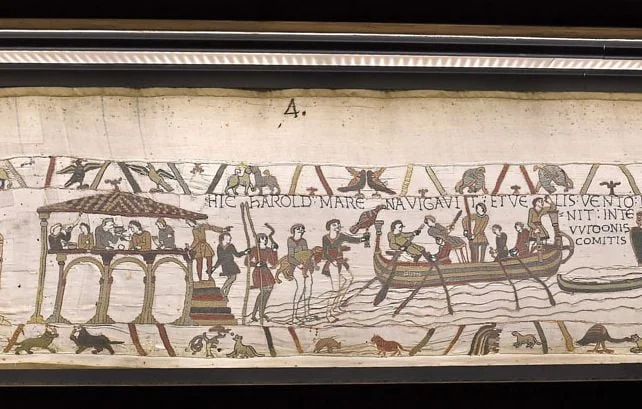 4.
HIC HAROLD: MARE NAVIGAVI ET VE LIS: VENTO:
NIT: INTE
VVIDONIS
COMITIS